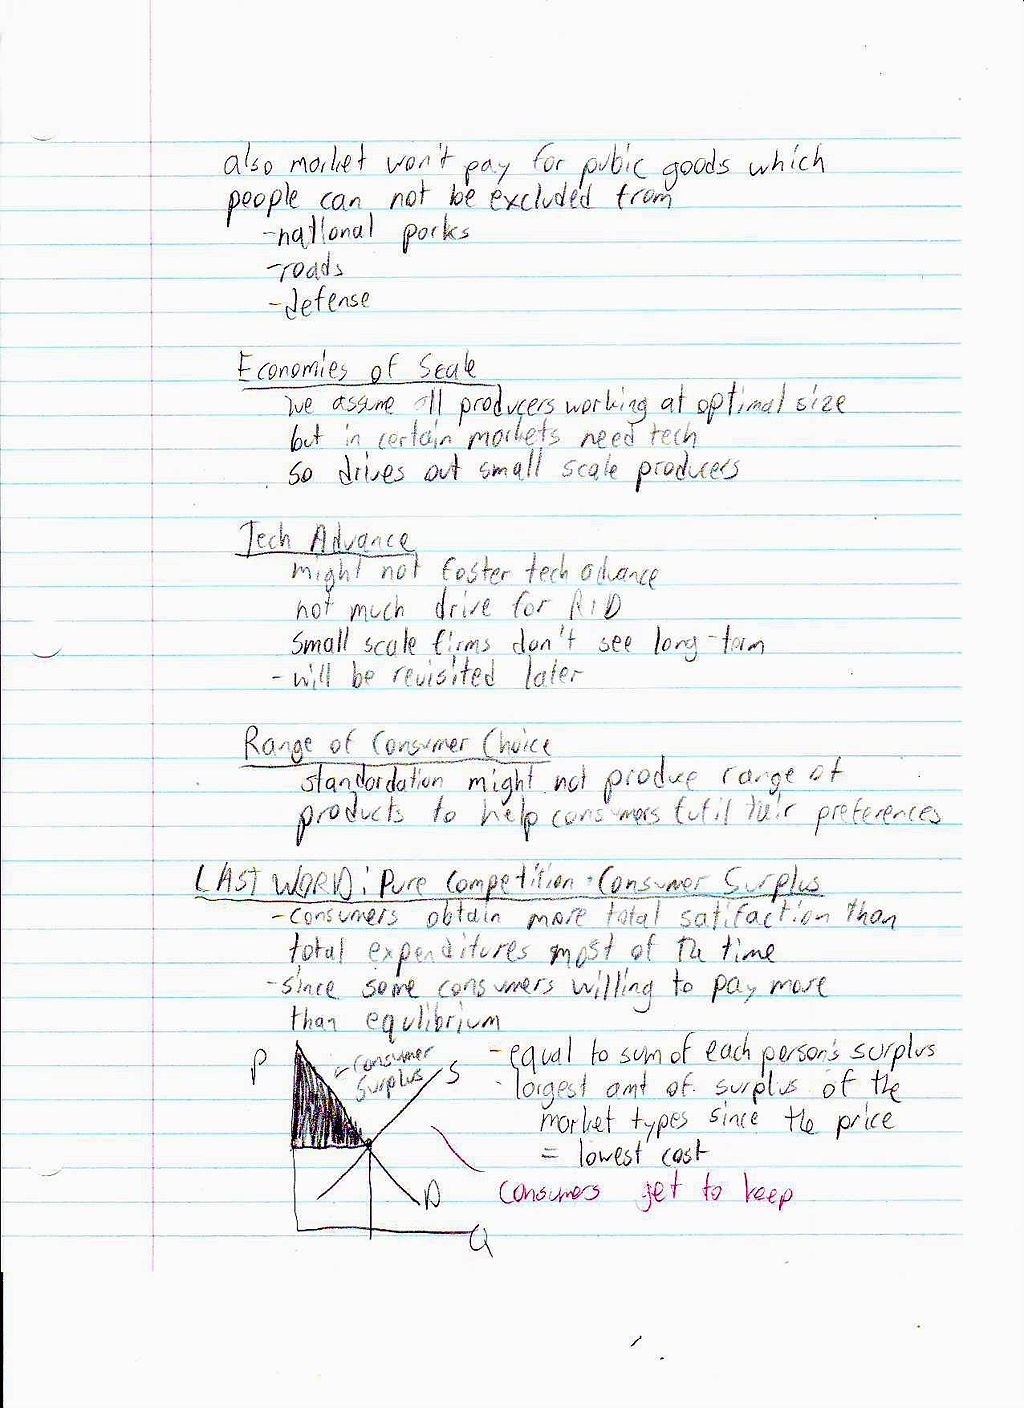 also market won't pay for pubic goods which
people can not be excluded from
-national parks
-roads
-defense
Economies of Scale
we assume all producers working at optimal size
but in certain markets need tech
so drives out small scale producers
Tech Advance
might not foster tech advance
not much drive for R+D
small scale firms don't see long-term
- will be revisited later
Range of Consumer Choice
standardation might not produce range of
products to help consumers fufil their preferences
LAST WORD: Pure Competition + Consumer Surplus
-consumers obtain more total satifaction than
total expenditures most of the time
-since some consumers willing to pay more
than equlibrium
P
consumer
surplus
S
D
Q
- equal to sum of each person's surplus
- largest amt of surplus of the
market types since the price
= lowest cost
consumers get to keep